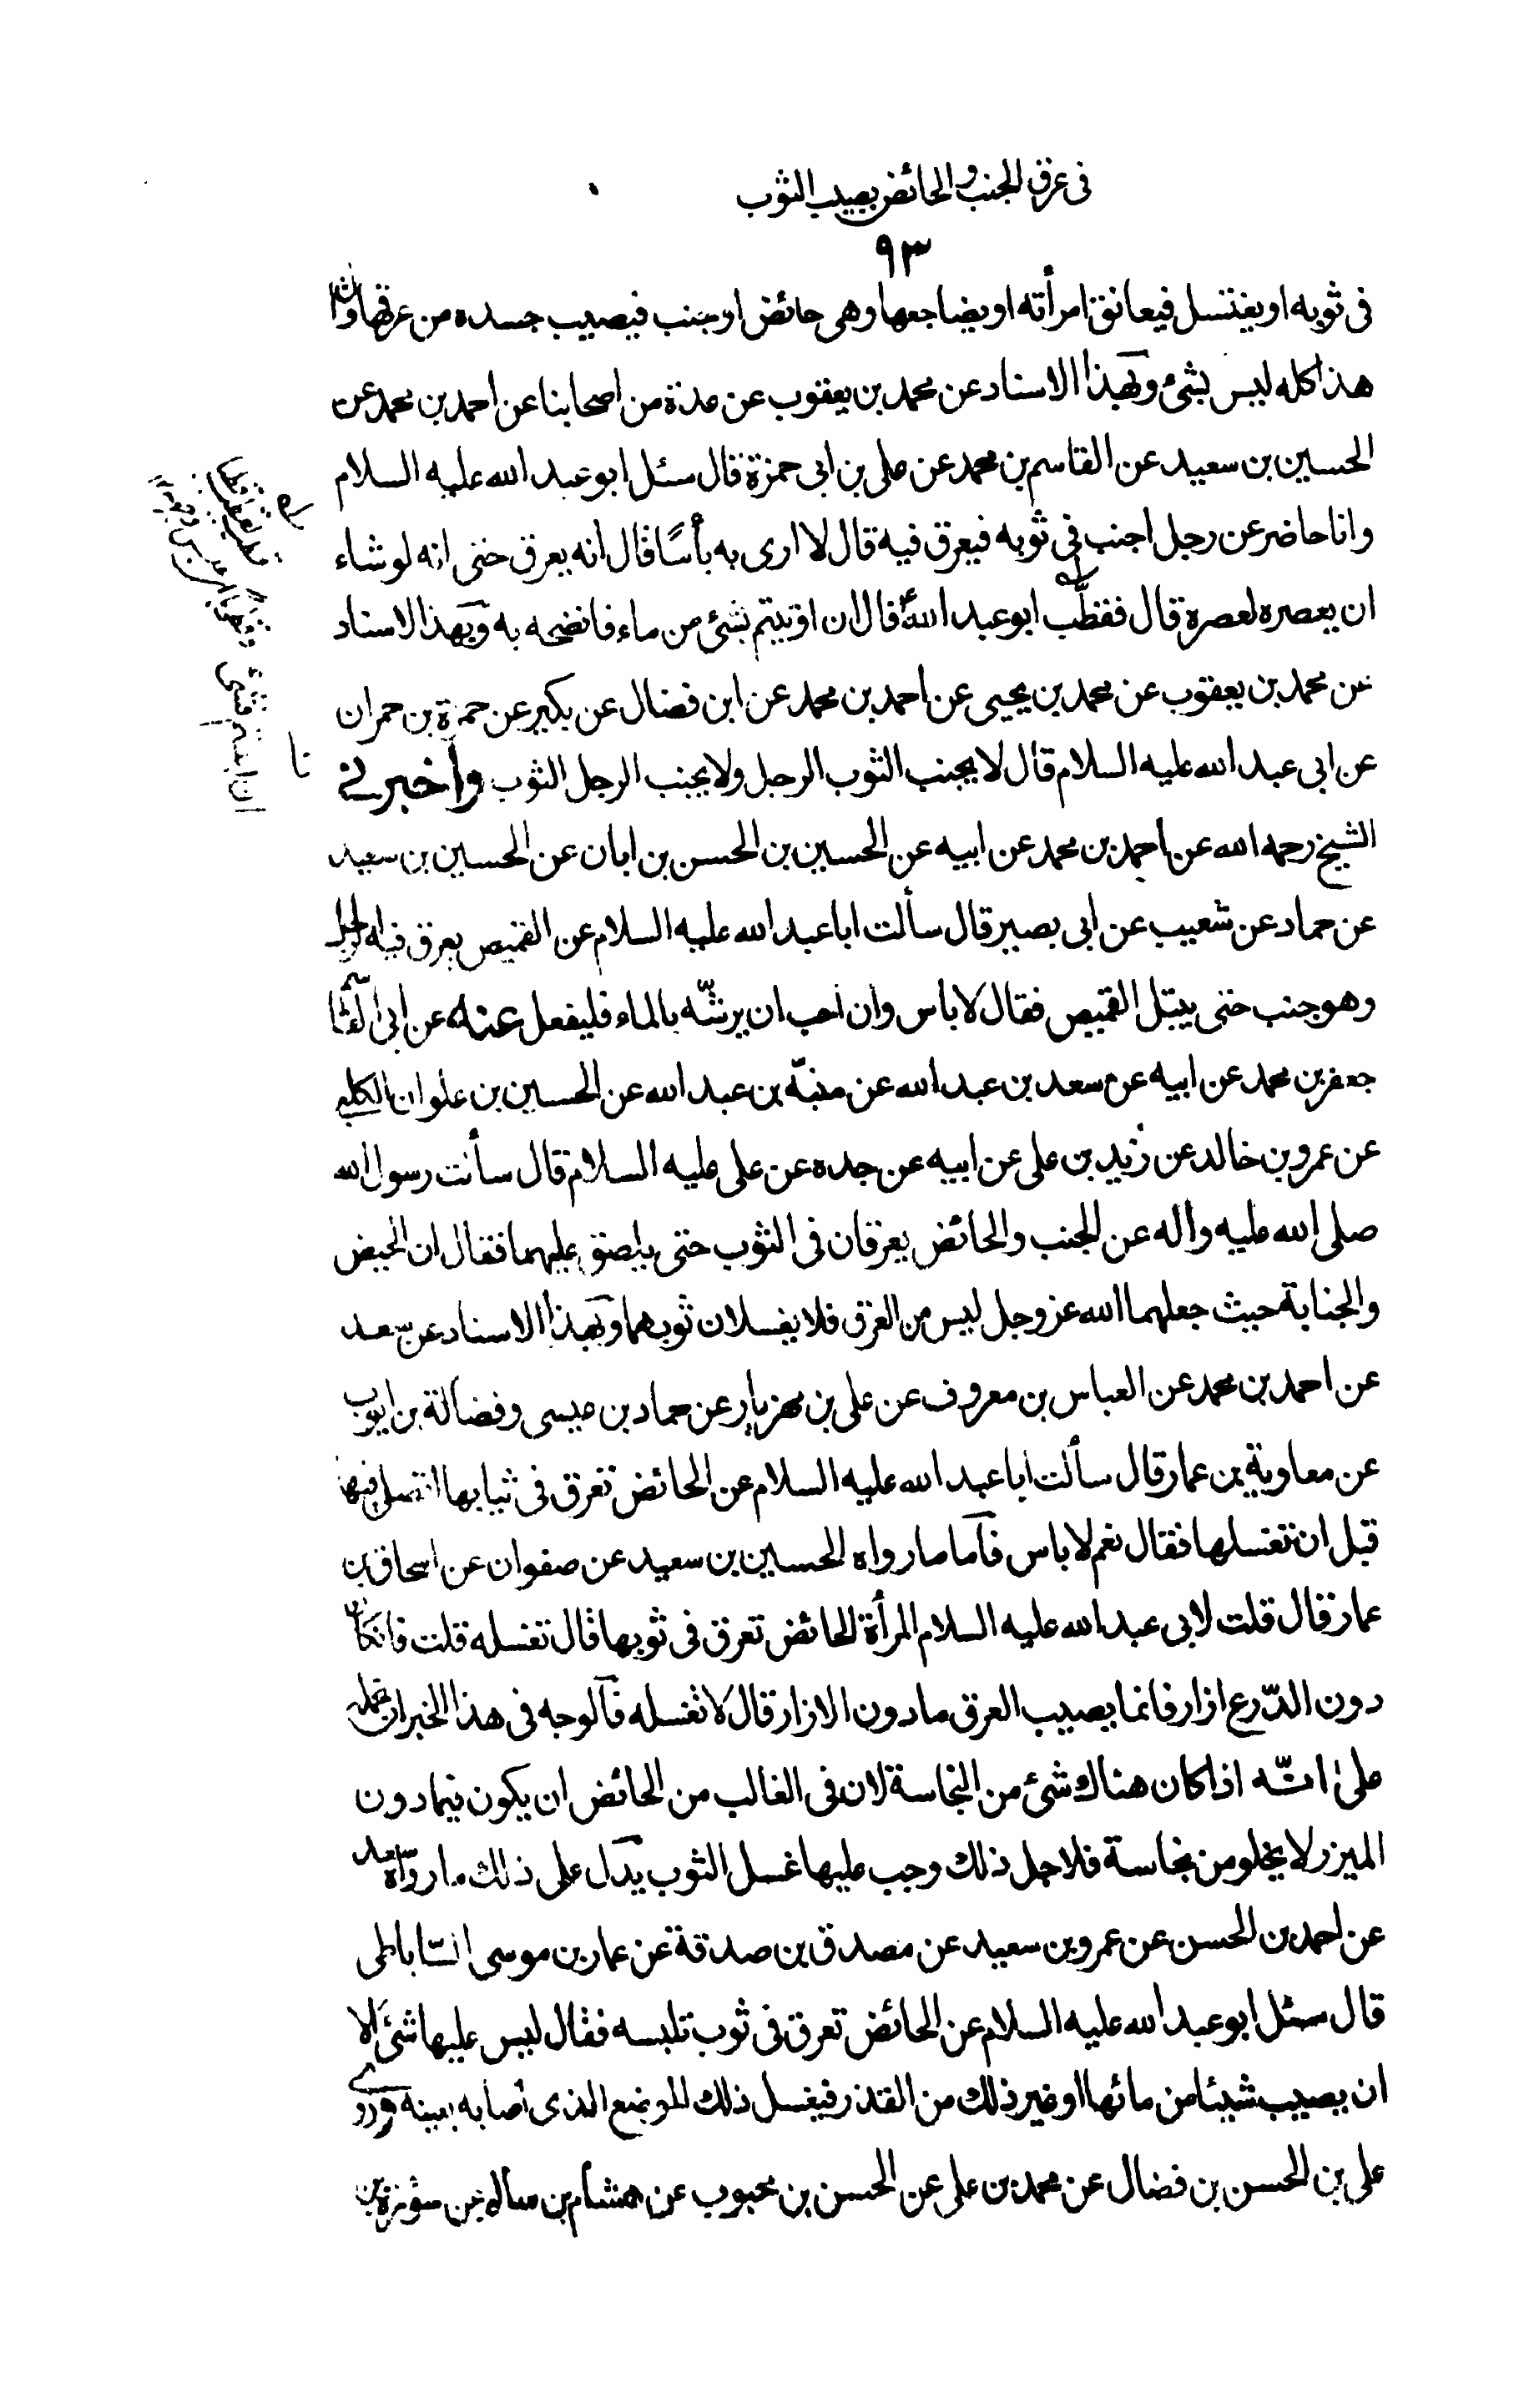 فى عرق الجنب والحائض يصيب الثوب
٩٣
فى ثوبه او يغتسل فيعانق امرأته او يضاجعها وهى حائض او جنب فيصيب جسده من عرقها قال
هذا كله ليس بشئ وبهذا الاسناد عن محمد بن يعقوب عن عدة من اصحابنا عن احمد بن محمد عن
الحسين بن سعيد عن القاسم بن محمد عن على بن ابى حمزة قال سئل ابو عبد الله عليه السلام
وانا حاضر عن رجل اجنب فى ثوبه فيعرق فيه قال لا ارى به بأسًا قال انه يعرق حتى انه لو شاء
ان يعصره لعصره قال فقطّب ابو عبد اللهؑ قال ان اوتيتم بشئ من ماء فانضحه به وبهذا الاسناد
عن محمد بن يعقوب عن محمد بن يحيى عن احمد بن محمد عن ابن فضال عن بكير عن حمزة بن حمران
عن ابى عبد الله عليه السلام قال لا يجنب الثوب الرجل ولا يجنب الرجل الثوب وأخبرنى
الشيخ رحمه الله عن احمد بن محمد عن ابيه عن الحسين بن الحسن بن ابان عن الحسين بن سعيد
عن حماد عن شعيب عن ابى بصير قال سألت ابا عبد الله عليه السلام عن القميص يعرق فيه الرجل
وهو جنب حتى يبتل القميص فقال لا باس وان احب ان يرشّه بالماء فليفعل عنه عن ابى القاسم
جعفر بن محمد عن ابيه عن سعد بن عبد الله عن منبّه بن عبد الله عن الحسين بن علوان الكلبى
عن عمرو بن خالد عن زيد بن على عن ابيه عن جده عن على عليه السلام قال سألت رسول الله
صلى الله عليه واله عن الجنب والحائض يعرقان فى الثوب حتى يلصق عليهما فقال ان الحيض
والجنابة حيث جعلهما الله عز وجل ليس من العرق فلا يغسلان ثوبهما وبهذا الاسناد عن سعد
عن احمد بن محمد عن العباس بن معروف عن على بن مهزيار عن حماد بن عيسى وفضالة بن ايوب
عن معاوية بن عمار قال سألت ابا عبد الله عليه السلام عن الحائض تعرق فى ثيابها اتصلى فيها
قبل ان تغسلها فقال نعم لا باس فأما ما رواه الحسين بن سعيد عن صفوان عن اسحاق بن
عمار قال قلت لابى عبد الله عليه السلام المرأة الحائض تعرق فى ثوبها قال تغسله قلت فان كان
دون الدّرع ازار فانما يصيب العرق ما دون الازار قال لا تغسله فالوجه فى هذا الخبر ان نحمله
على انّه اذا كان هناك شئ من النجاسة لان فى الغالب من الحائض ان يكون فيما دون
الميزر لا يخلو من نجاسة فلاجل ذلك وجب عليها غسل الثوب يدل على ذلك ما رواه سعد
عن احمد بن الحسن عن عمرو بن سعيد عن مصدق بن صدقة عن عمار بن موسى السّاباطى
قال سئل ابو عبد الله عليه السلام عن الحائض تعرق فى ثوب تلبسه فقال ليس عليها شئ الا
ان يصيب شيئا من مائها او غير ذلك من القذر فيغسل ذلك الموضع الذى أصابه بعينه وروى
على بن الحسن بن فضال عن محمد بن على عن الحسن بن محبوب عن هشام بن سالم عن سورة بن